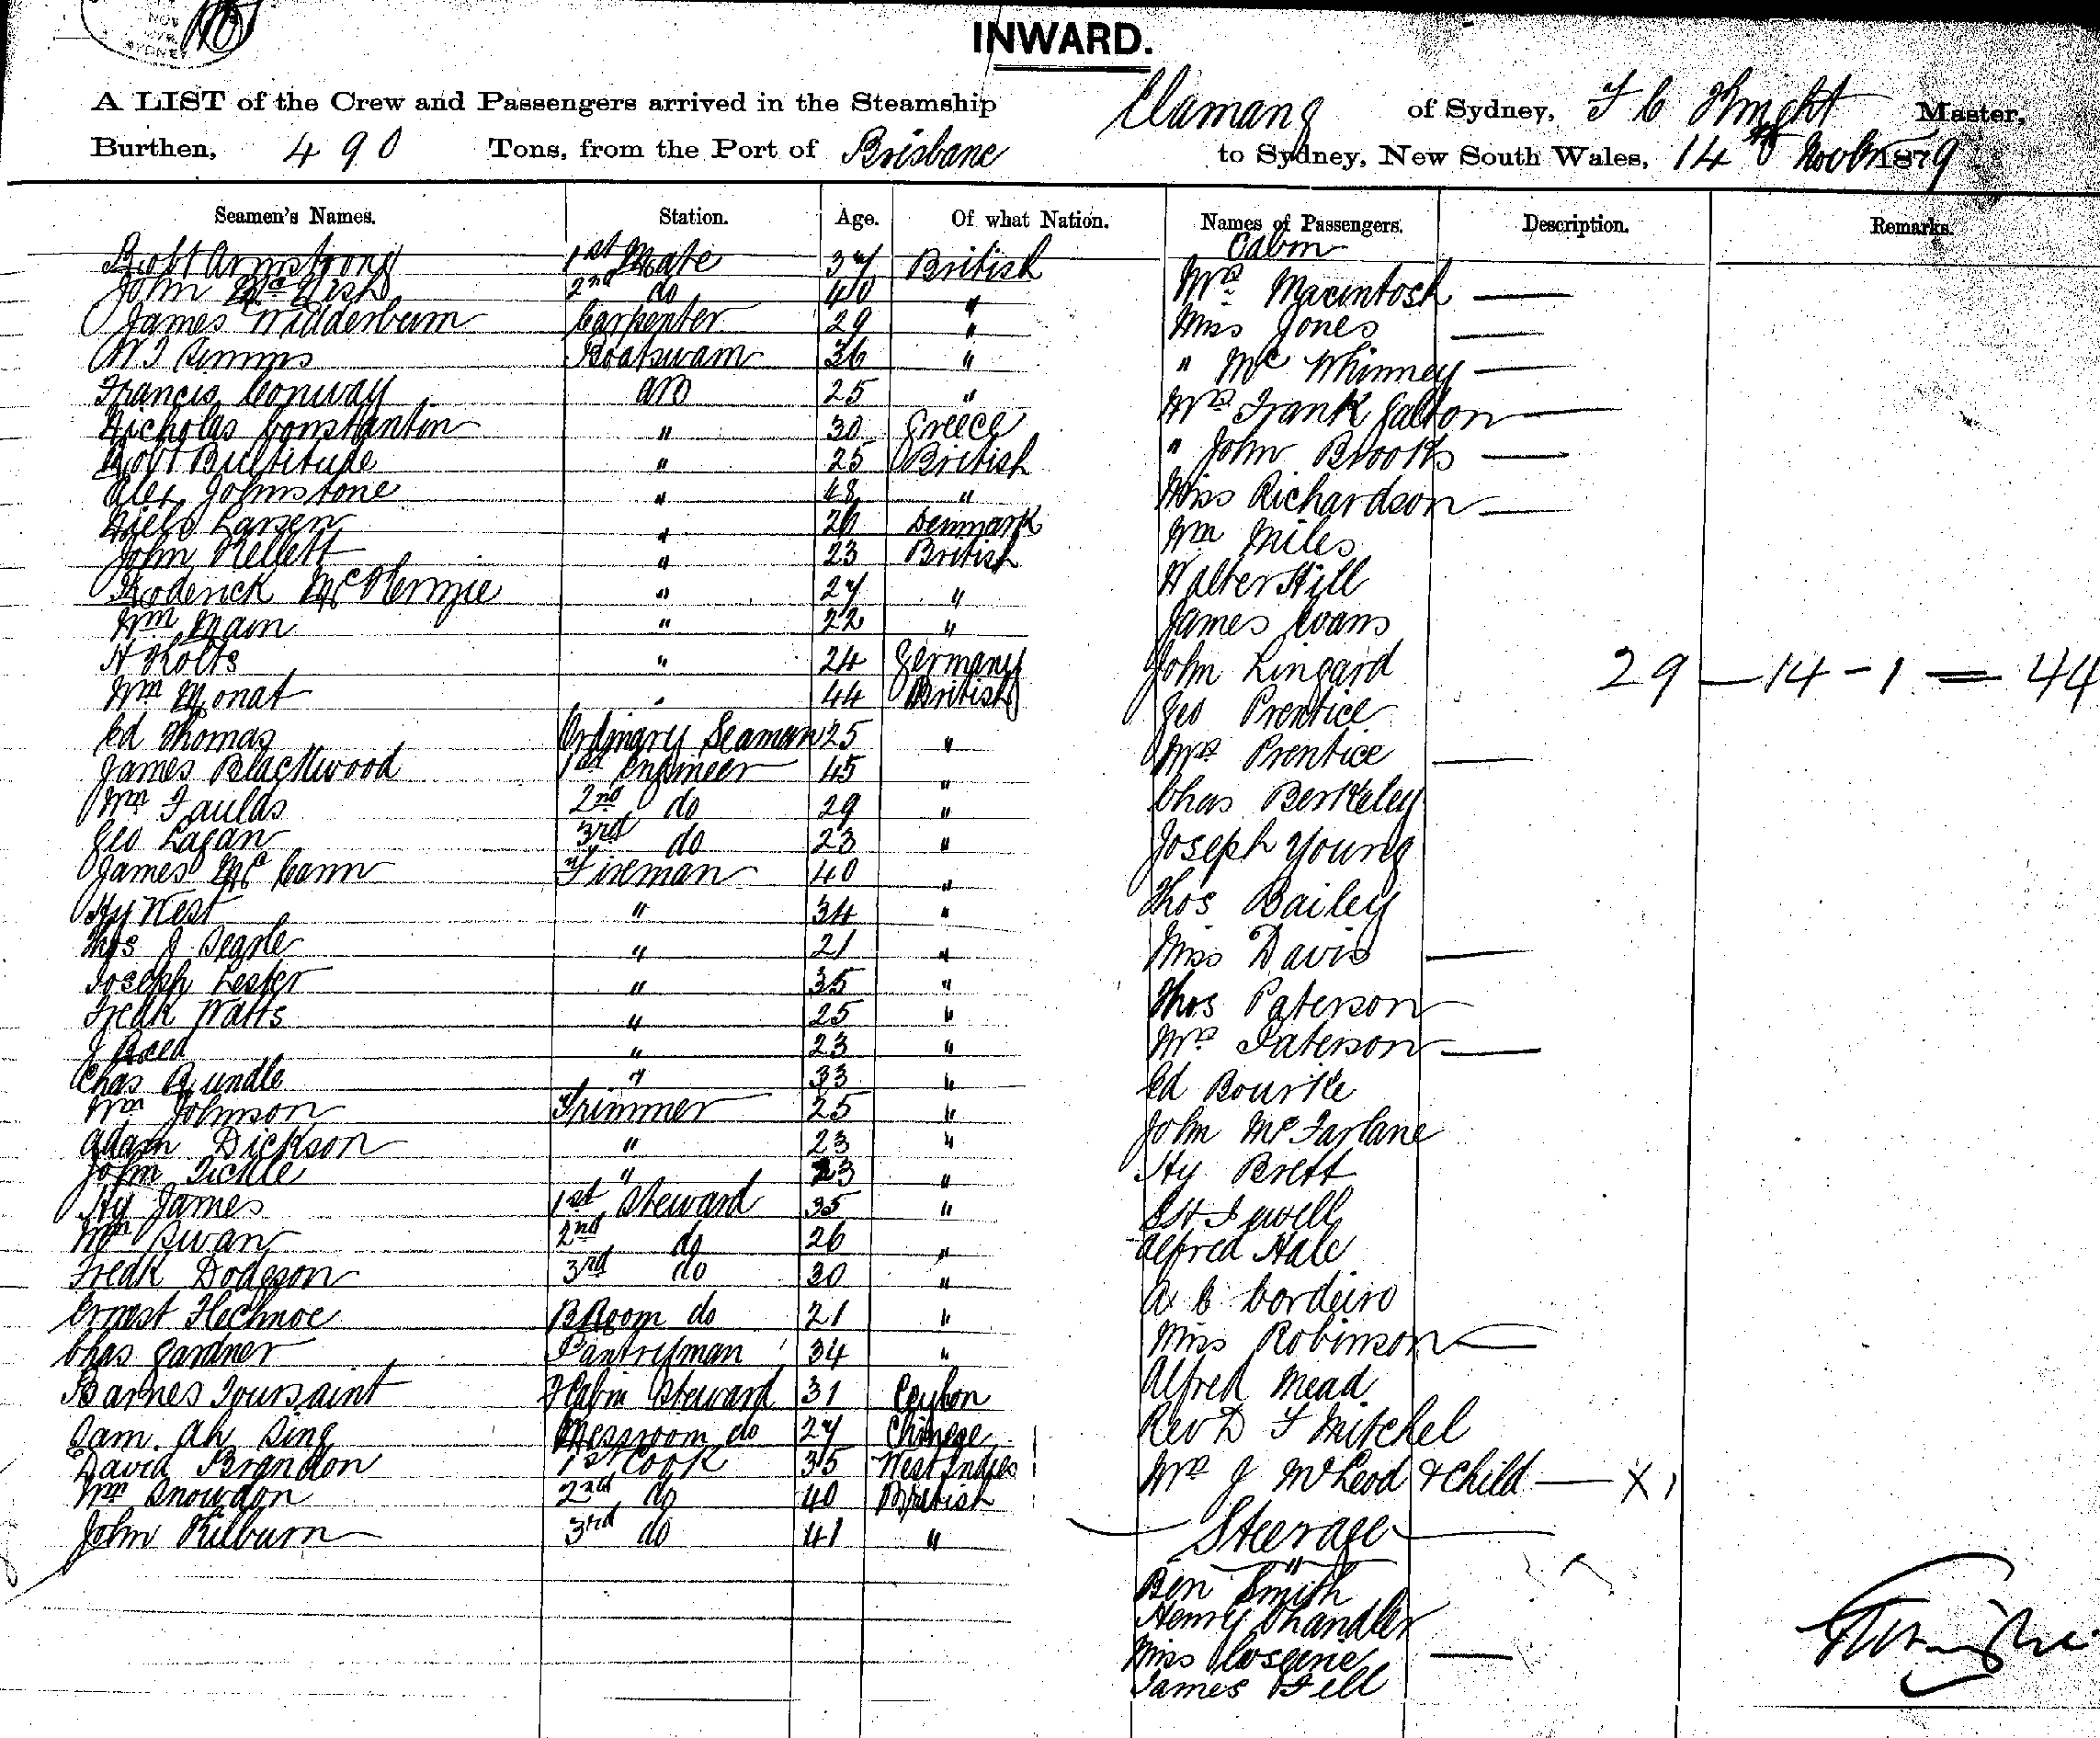 INWARD.
A LIST of the Crew and Passengers arrived in the Steamship Elamang of Sydney, T C Knight Master,
Burthen, 490 Tons, from the Port of Brisbane to Sydney, New South Wales, 14th Novbr 1879
Seamen's Names. Station. Age. Of what Nation. Names of Passengers. Description. Remarks.
Robt Armstrong 1st Mate 37 British
John McNish 2nd do 40 "
James Widderburn Carpenter 29 "
W J Simms Boatswain 36 "
Francis Conway AB 25 "
Nicholas Constantin " 30 Greece
Robt Bultitude " 25 British
Alex Johnstone " 48 "
Niels Larsen " 26 Denmark
John Kellett " 23 British
Roderick McKenzie " 27 "
Wm Main " 22 "
H Kolts " 24 Germany
Wm Monat " 44 British
Ed Thomas Ordinary Seaman 25 "
James Blackwood 1st Engineer 45 "
Wm Faulds 2nd do 29 "
Geo Lagan 3rd do 23 "
James McCann Fireman 40 "
Hy West " 34 "
Thos J Searle " 21 "
Joseph Lester " 35 "
Fredk Watts " 25 "
J Reed " 23 "
Chas Rundle " 33 "
Wm Johnson Trimmer 25 "
Adam Dickson " 23 "
John Tickle " 23 "
Hy James 1st Steward 35 "
Wm Swan 2nd do 26 "
Fredk Dodgson 3rd do 30 "
Ernest Flechnoe B Room do 21 "
Chas Gardner Pantryman 34 "
Barnes Toussaint F Cabin Steward 31 Ceylon
Sam Ah Sing Messroom do 27 Chinese
David Brandon 1st Cook 35 West Indies
Wm Snowdon 2nd do 40 British
John Kilburn 3rd do 41 "
Cabin
Mrs Macintosh —
Miss Jones —
" McWhinney —
Mrs Frank Galton —
" John Brooks —
Miss Richardson —
Wm Miles
Walter Hill
James Evans
John Lingard
Geo Prentice
Mrs Prentice —
Chas Berkeley
Joseph Young
Thos Bailey
Miss Davis —
Thos Paterson
Mrs Paterson —
Ed Bourke
John McFarlane
Hy Brett
Jewell
Alfred Hale
A C Cordeiro
Miss Robinson —
Alfred Mead
Rev D F Mitchel
Mrs J McLeod & Child — X 1
Steerage
Ben Smith
Henry Chandler
Miss —
James Fell
29 — 14 - 1 = 44